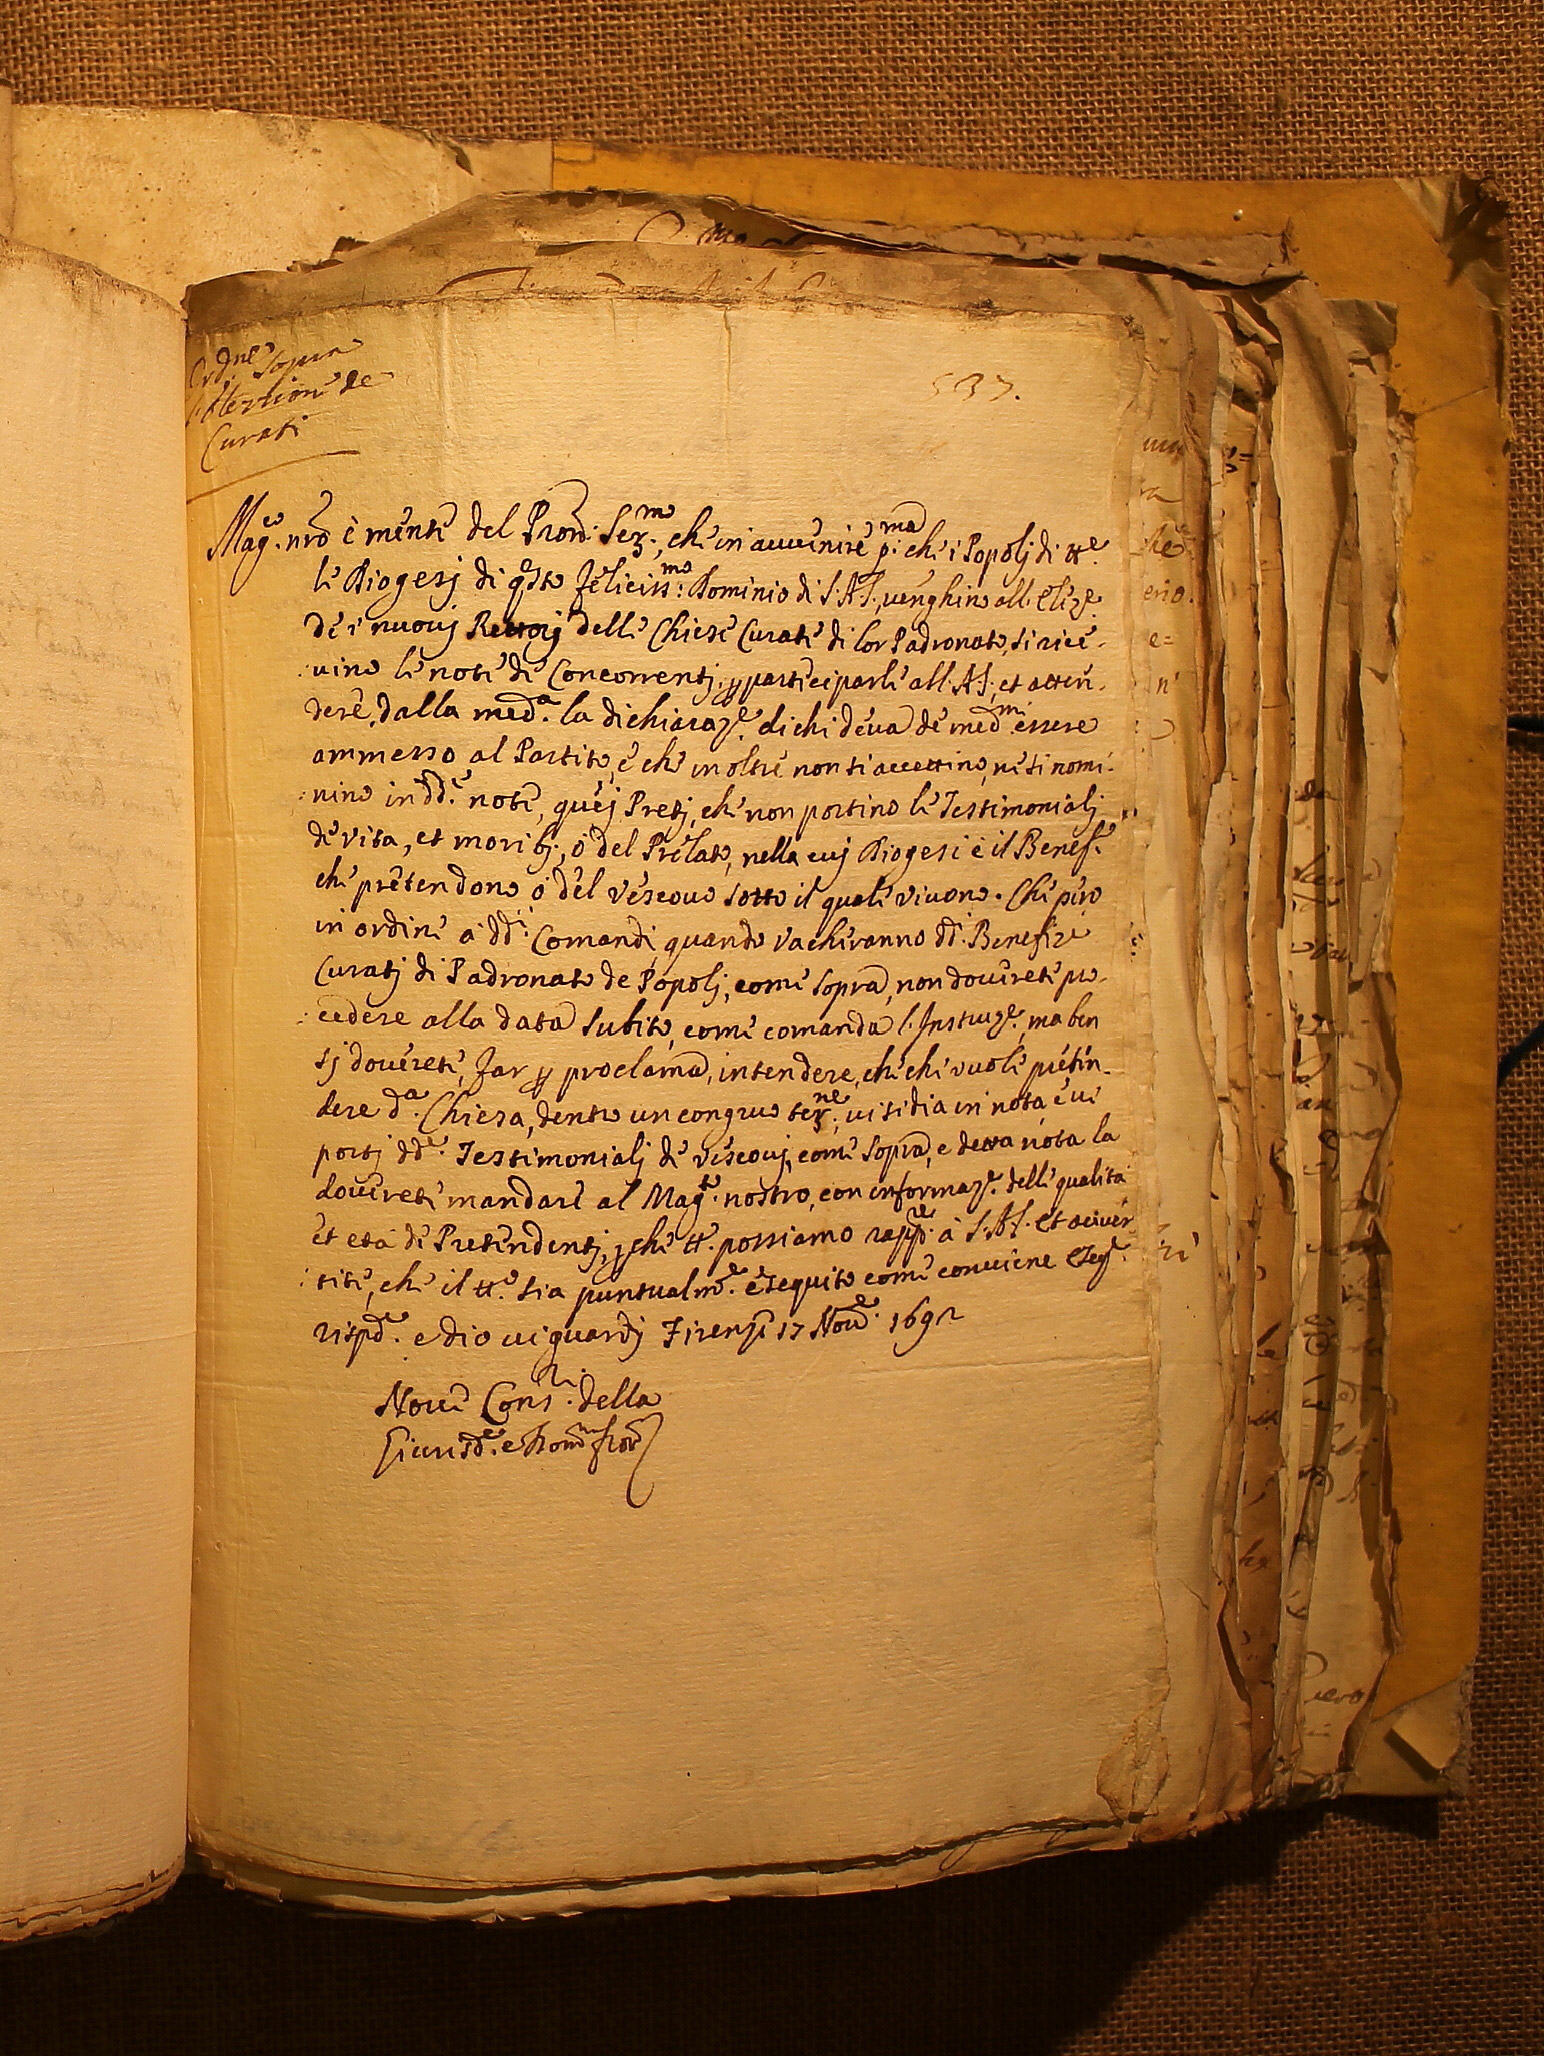 Ord.ne sopra
l'Elezzione de
Curati
537.
Mag.co nro è mente del Pron: Ser.mo, che in auuenire p.ma che i Popolj di tt.e
le Diogesj di q.sto felicis.mo: Dominio di S.A.S., uenghino all'Elez.e
de i nuouj Rettorj delle Chiese Curate di lor Padronato, si rice-
:uino le note de Concorrentj, p parteciparle all'A.S., et atten-
dere, dalla med.a la dichiaraz.e di chi deua de med.mi essere
ammesso al Partito, e che inoltre non si accettino, ne si nomi-
:nino in dd.e note, quej Pretj, che non portino le Testimonialj
de vita, et moribj, ò del Prelato, nella cuj Diogesi è il Benef.o
che pretendono, ò del Vescouo sotto il quale viuono. Che però
in ordine à dd.i Comandi, quando vacheranno dd.i Benefizi
Curatj di Padronato de Popolj, come sopra, non douerete pro-
:cedere alla data subito, come comanda l'Instruz.e, ma ben
sj douerete, far p proclama, intendere, che chi vuole preten-
dere d.a Chiesa, dentro un congruo ter.ne, ui si dia in nota, e ui
portj dd.e Testimonialj de vescouj, come sopra, e detta nota la
douerete mandare al Mag.to nostro, con informaz.e delle qualità
et età de Pretendentj, pche tt. possiamo rapp.re à S.A.S. et auuer-
:tite, che il tt.o sia puntualm.e eseguito come conuiene e seg.e
risp.de e dio ui guardj Firenze 17 Nou.e 1692
Noue Cons.ri della
Giurisd.e e Dom.o fior.no